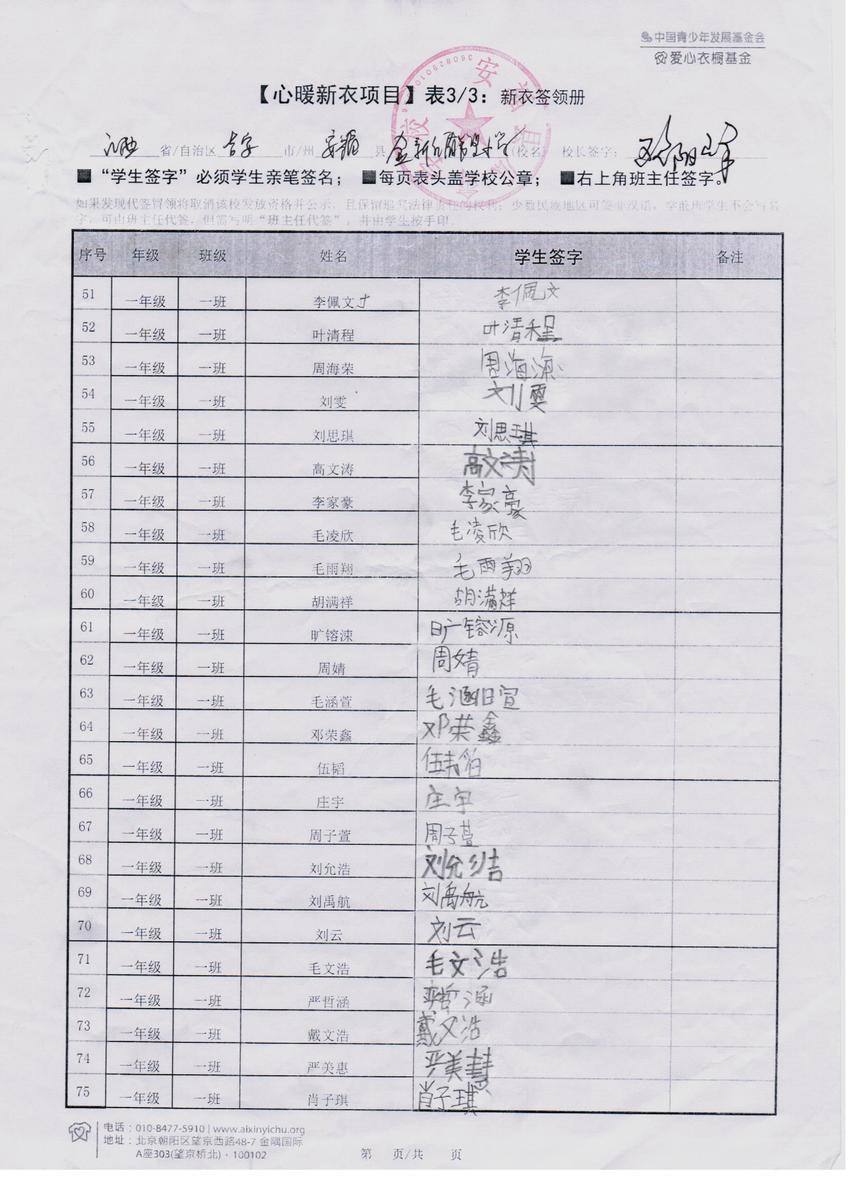 中国青少年发展基金会
爱心衣橱基金
【心暖新衣项目】表3/3：新衣签领册
江西 省/自治区 吉安 市/州 安福 县 (校名) 校长签字：
■“学生签字”必须学生亲笔签名；■每页表头盖学校公章；■右上角班主任签字。
如果发现代签冒领将取消该校发放资格并公示，且保留追究法律责任的权利；少数民族地区可签非汉语，学前班学生不会写名
字，可由班主任代签，但需写明“班主任代签”，并由学生按手印。
序号 年级 班级 姓名 学生签字 备注
51 一年级 一班 李佩文 李佩文
52 一年级 一班 叶清程 叶清程
53 一年级 一班 周海荣 周海
54 一年级 一班 刘雯 刘雯
55 一年级 一班 刘思琪 刘思琪
56 一年级 一班 高文涛 高文涛
57 一年级 一班 李家豪 李家豪
58 一年级 一班 毛凌欣 毛凌欣
59 一年级 一班 毛雨翔 毛雨翔
60 一年级 一班 胡满祥 胡满祥
61 一年级 一班 旷镕涑 旷镕源
62 一年级 一班 周婧 周婧
63 一年级 一班 毛涵萱 毛涵暄
64 一年级 一班 邓荣鑫 邓荣鑫
65 一年级 一班 伍韬 伍韬
66 一年级 一班 庄宇 庄宇
67 一年级 一班 周子萱 周子萱
68 一年级 一班 刘允浩 刘允浩
69 一年级 一班 刘禹航 刘禹航
70 一年级 一班 刘云 刘云
71 一年级 一班 毛文浩 毛文浩
72 一年级 一班 严哲涵 严哲涵
73 一年级 一班 戴文浩 戴文浩
74 一年级 一班 严美惠 严美慧
75 一年级 一班 肖子琪 肖子琪
电话：010-8477-5910 | www.aixinyichu.org
地址：北京朝阳区望京西路48-7 金隅国际
A座303(望京桥北)·100102
第 页/共 页